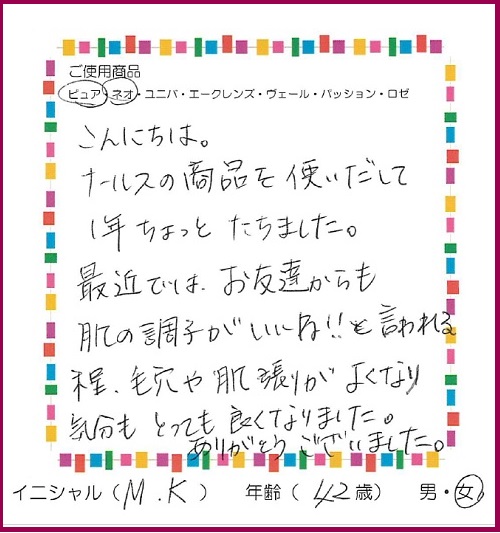 ご使用商品
ピュア・ネオ・ユニバ・エークレンズ・ヴェール・パッション・ロゼ
こんにちは。
ナールスの商品を使いだして
1年ちょっと たちました。
最近では、お友達からも
肌の調子がいいね!!と言われる
程、毛穴や肌張りがよくなり
気分もとっても良くなりました。
ありがとうございました。
イニシャル（M.K） 年齢（42歳） 男・女